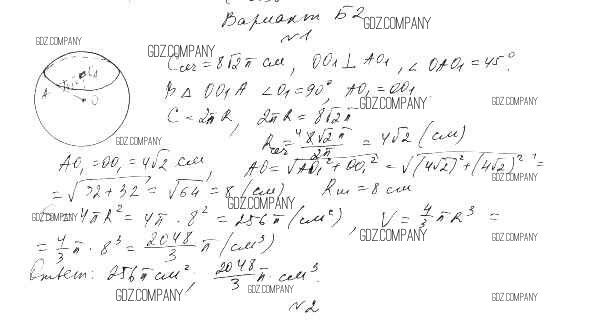 Вариант Б2
GDZ.COMPANY
N1
GDZ.COMPANY
GDZ.COMPANY
Cсеч = 8√2 π см, OO₁ ⊥ AO₁, ∠ OAO₁ = 45°.
A O₁ O
В Δ OO₁A ∠O₁ = 90°, AO₁ = OO₁
GDZ.COMPANY GDZ.COMPANY
C = 2πR, 2πR = 8√2 π
GDZ.COMPANY
Rсеч = 8√2 π / 2π = 4√2 (см)
AO₁ = OO₁ = 4√2 см, AO = √(AO₁² + OO₁²) = √((4√2)² + (4√2)²) =
GDZ.COMPANY
= √(32 + 32) = √64 = 8 (см) Rш = 8 см
GDZ.COMPANY
GDZ.COMPANY
= 4πR² = 4π · 8² = 256π (см²), V = 4/3 πR³ =
GDZ.COMPANY GDZ.COMPANY
= 4/3 π · 8³ = 2048/3 π (см³)
Ответ: 256π см²; 2048/3 π см³.
GDZ.COMPANY GDZ.COMPANY GDZ.COMPANY
N2